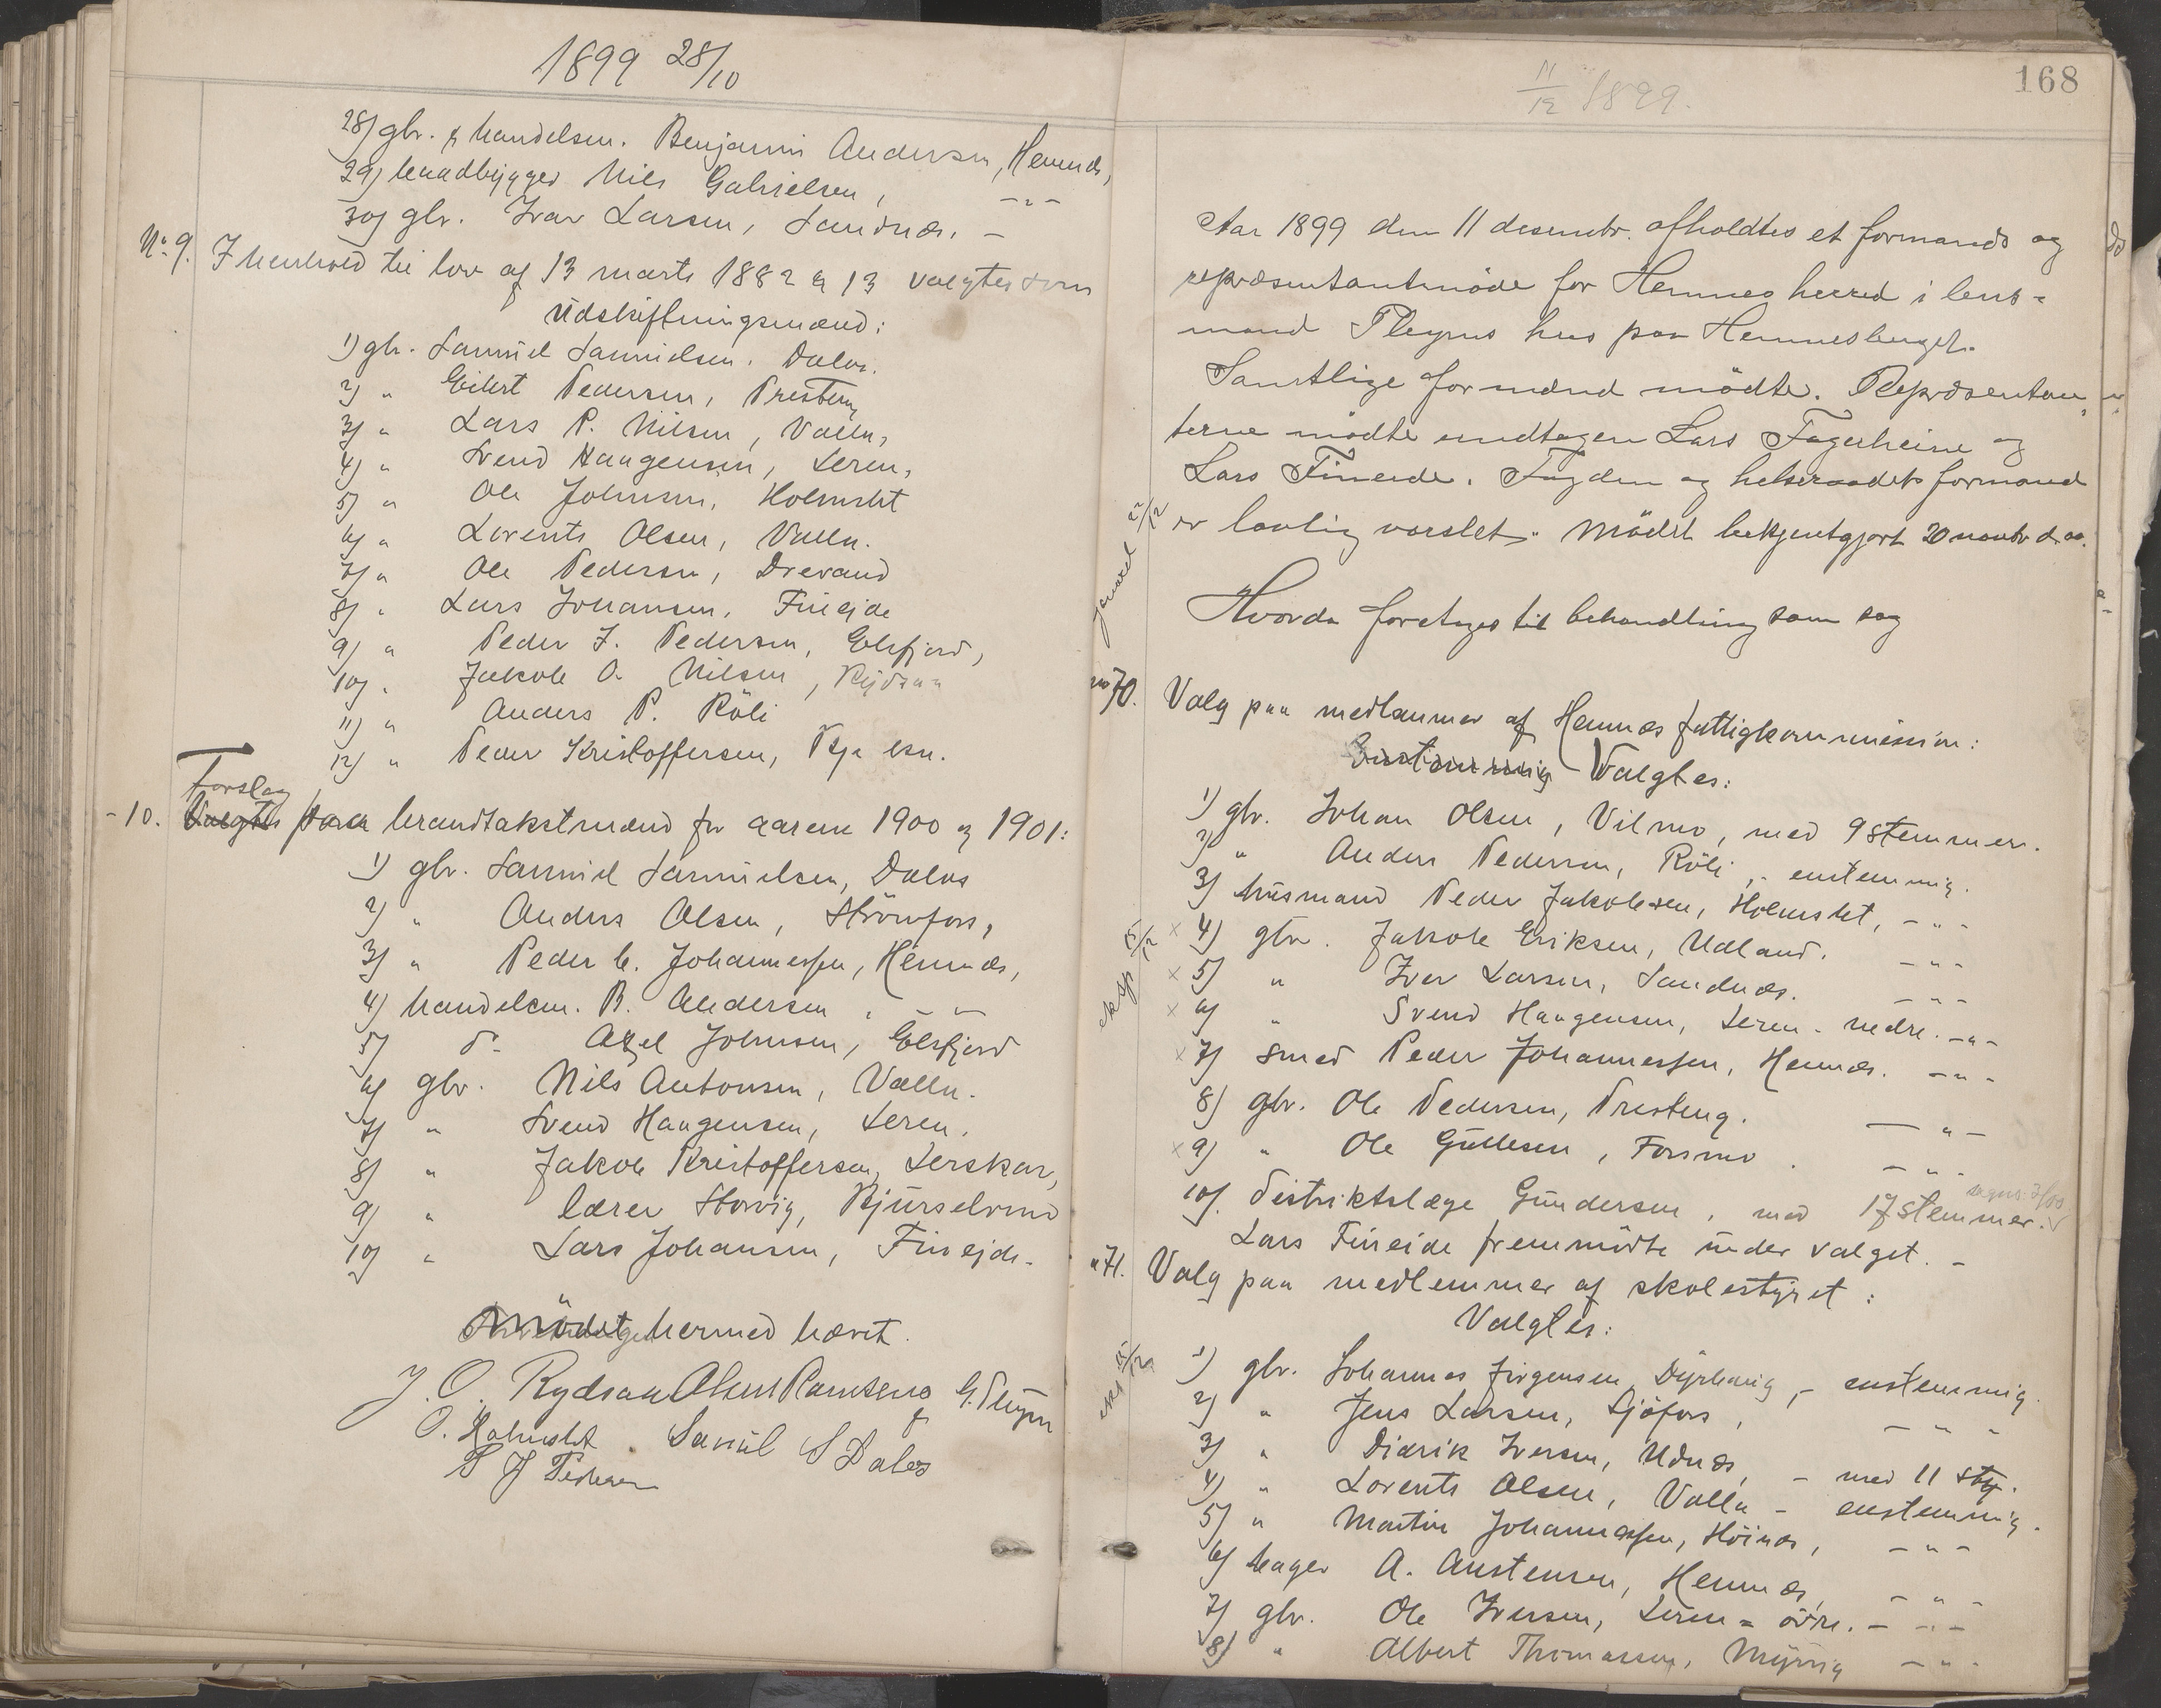 1899 28/10
28) gbr. & handelsm. Benjamin Andersen, Hemnes,
29) baadbygger Nils Gabrielsen, -"-
30) gbr. Ivar Larsen, Sandnes. -
No 9. I henhold til lov af 13 marts 1882 § 13 valgtes som
Udskiftningsmænd:
1) gbr. Samuel Samuelsen. Dalos.
2) " Eilert Pedersen, Presteng
3) " Lars P. Nilsen, Valla,
4) " Svend Haagensen, Leren,
5) " Ole Johnsen, Holmslet
6) " Lorents Olsen, Valla.
7) " Ole Pedersen, Drevand
8) " Lars Johansen, Fineide
9) " Peder J. Pedersen, Elsfjord,
10) " Jakob O. Nilsen, Rydsaa
11) " Anders P. Röli
12) " Peder Kristoffersen,
Forslag
- 10. Valgtes paa brandtakstmænd for aarene 1900 og 1901:
1) gbr. Samuel Samuelsen, Dalos
2) " Anders Olsen, Strömfors,
3) " Peder C. Johannessen, Hemnes,
4) handelsm. B. Andersen, - " -
5) do Axel Johnsen, Elsfjord
6) gbr. Nils Antonsen, Valla.
7) " Svend Haagensen, Leren.
8) " Jakob Kristoffersen, Lerskar,
9) " lærer Storvig, Bjurselvmo
10) " Lars Johansen, Fineide.
Mödet hermed hævet.
J. O. Rydsaa Olaus Ramseng G. Pleym
O. Holmslet. Samuel S Dalos
P J Pedersen
168
11/12 1899.
Aar 1899 den 11 desembr. afholdtes et formands og
repræsentantmöde for Hemnes herred i lens-
mand Pleyms hus paa Hemnesberget.
Samtlige formænd mödte. Repræsentan-
terne mödte undtagen Lars Fagerheim og
Lars Fineide. Fogden og helseraadets formand
er lovlig varslet. Mödet bekjentgjort 20 novbr d. aa.
Hvorda foretages til behandling som sag
no 70. Valg paa medlemmer af Hemnes fattigkommission:
Enstemmig Valgtes:
1) gbr. Johan Olsen, Vilmo, med 9 stemmer.
2) " Anders Pedersen, Röli, - enstemmig.
3) husmand Peder Jakobsen, Holmslet, - " -
eksp 15/12
x 4) gbr. Jakob Eriksen, Udland. - " -
x 5) " Iver Larsen, Sandnes. - " -
x 6) " Svend Haagensen, Leren - nedre. - " -
x 7) smed Peder Johannessen, Hemnes. - " -
8) gbr. Ole Pedersen, Presteng. - " -
x 9) " Ole Gullesen, Forsmo. - " -
10) distriktslæge Gundersen, med 17 stemmer.
Lars Fineide fremmödte under valget. -
" 71. Valg paa medlemmer af skolestyret:
Valgtes:
eks 15/12
1) gbr. Johannes Jörgensen Dyrhaug, - enstemmig.
2) " Jens Larsen, Sjöfors, - " -
3) " Didrik Iversen, Udnes, - med 11 st.
4) " Lorents Olsen, Valla - enstemmig.
5) " Martin Johannessen, Höines, - " -
6) bager A. Austensen, Hemnes, - " -
7) gbr. Ole Iversen, Leren = övre. - " -
8) " Albert Thomassen, - " -